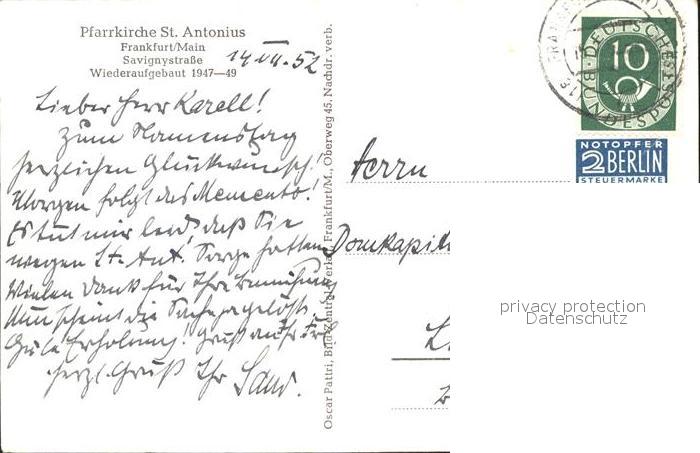 Pfarrkirche St. Antonius
Frankfurt/Main
Savignystraße
Wiederaufgebaut 1947—49
14.VII.52
Lieber Herr Karell!
Zum Namenstag
herzlichen Glückwunsch!
Morgen folgt das Memento!
Es tut mir leid, daß Sie
wegen St. Ant. Sorge hatten
Vielen Dank für Ihre Bemühung
Nun scheint die Sache ja gelöst.
Gute Erholung! Gruß an
herzl. Gruß Ihr
Oscar Pattri, Bild-Zentral-Verlag, Frankfurt/M., Oberweg 45. Nachdr. verb.
DEUTSCHE BUNDESPOST
10
FRANKFURT
NOTOPFER
2 BERLIN
STEUERMARKE
Herrn
Domkapit
privacy protection
Datenschutz